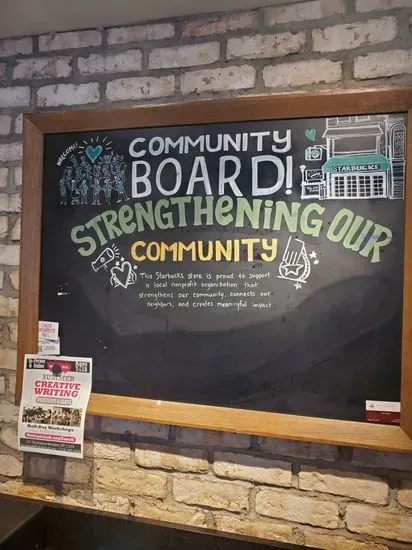 WELCOME!
COMMUNITY
BOARD!
STARBUCKS
STRENGTHENING OUR
COMMUNITY
This Starbucks store is proud to support
a local nonprofit organization that
strengthens our community, connects our
neighbors, and creates meaningful impact.
In-Person
& Online
SUMMER
CREATIVE
WRITING
WORKSHOPS & CAMPS
Half-Day Workshops